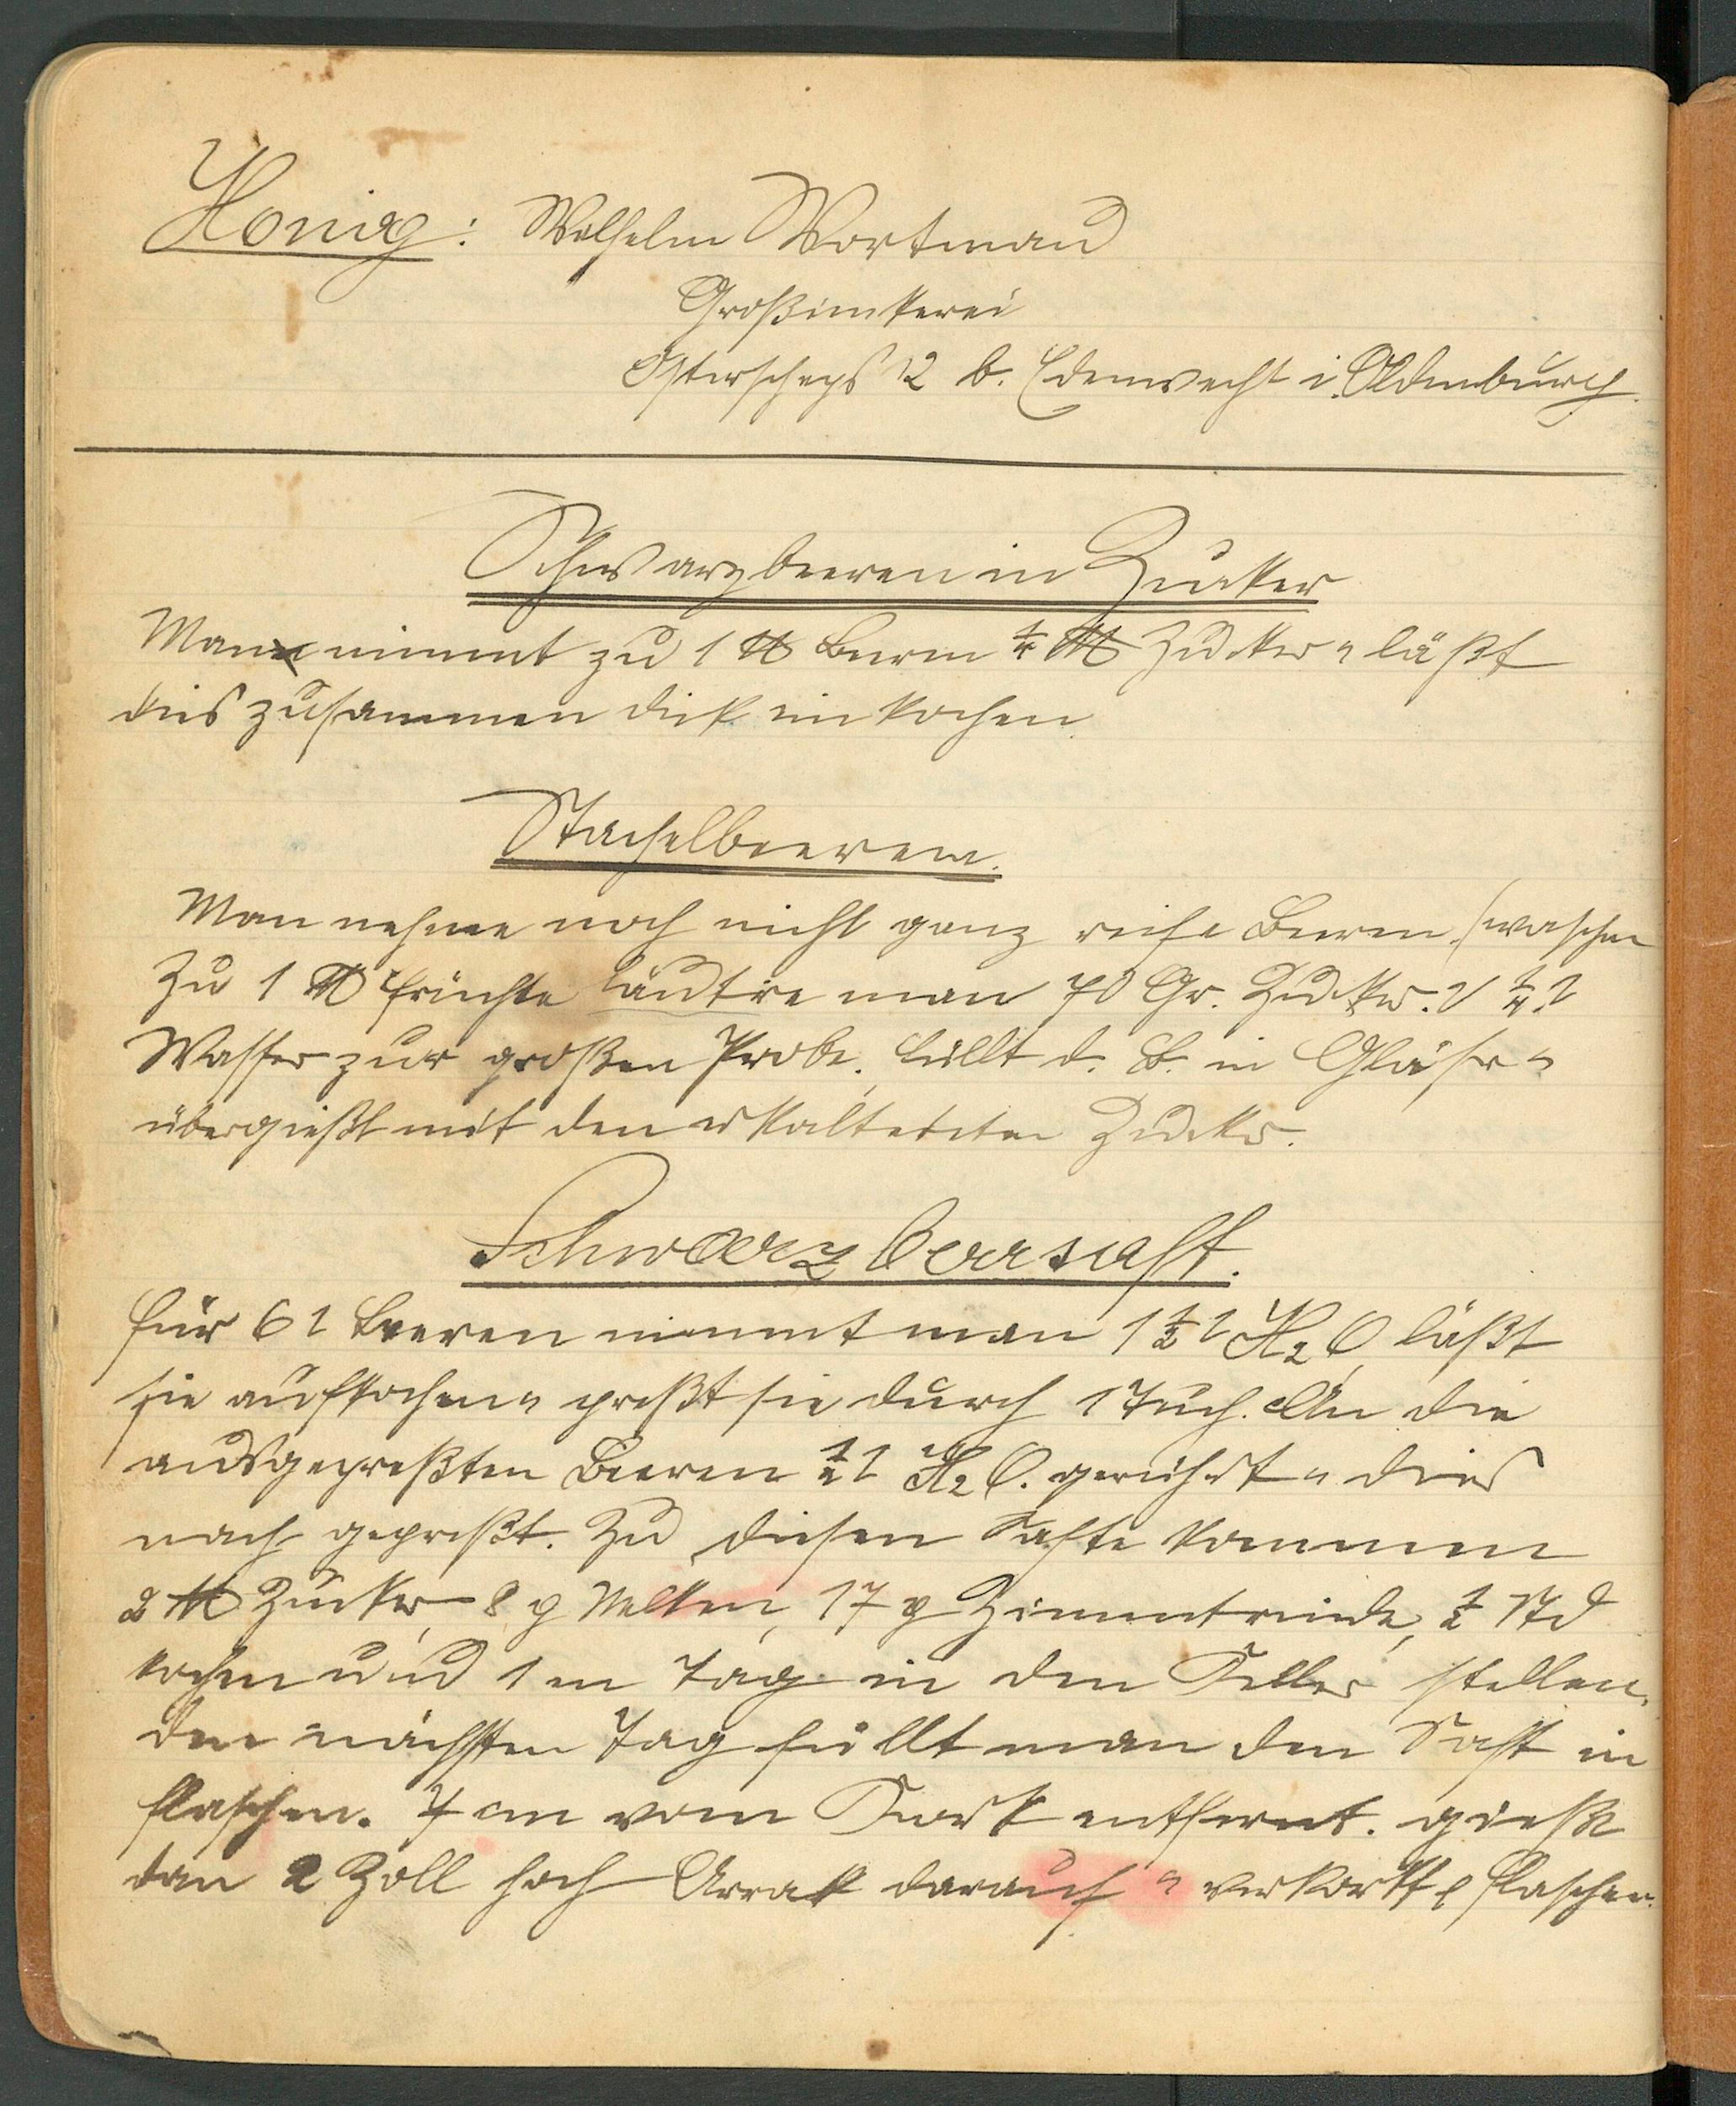 Honig: Wilhelm Wortmann
Großimkerei
Osterscheps 12 b. Edewecht i. Oldenburg.
Schwarzbeeren in Zucker
Man nimmt zu 1 ℔ Beeren ¼ ℔ Zucker u läßt
dies zusammen dick einkochen.
Stachelbeeren.
Man nehme noch nicht ganz reife Beeren, (waschen
Zu 1 ℔ Früchte läutre man 70 Gr. Zucker. ¼ l
Wasser zur großen Probe. füllt d. B. in Gläser u
übergießt mit den erkalteten Zucker.
Schwarzbeersaft.
für 6 l Beeren nimmt man 1 ½ l H₂O, läßt
sie aufkochen u preßt sie durch 1 Tuch. An die
ausgepreßten Beeren ½ l H₂O. gerührt u dies
nach gepreßt. Zu diesen Safte kommen
2 ℔ Zucker, 8 g Nelken, 17 g Zimmtrinde, ½ Std
kochen und 1 en Tag in den Keller stellen.
den nächsten Tag füllt man den Saft in
flaschen. 7 cm vom Kork entfernt. gießt
dan 2 Zoll hoch Arrak darauf u verkorkt flaschen.